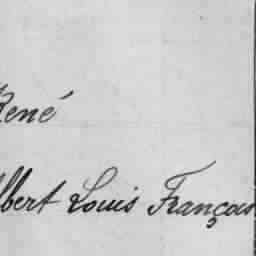 René
Albert Louis François